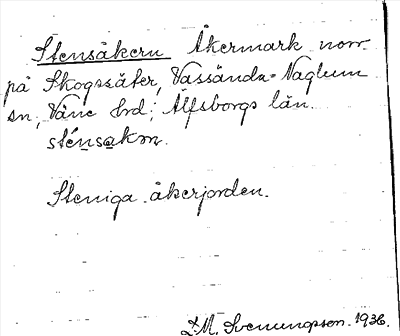 Stensåkern Åkermark norr
på Skogssäter, Vassända-Naglum
sn, Väne hrd; Älfsborgs län.
sténsakm.
Steniga åkerjorden.
I.M. Svenungsson. 1936.